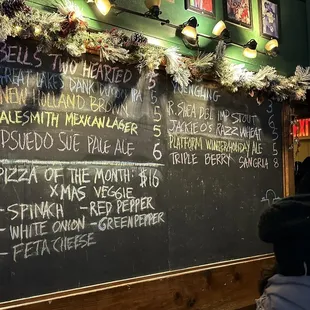 BELLS TWO HEARTED 5
GREAT LAKES DANK 5
NEW HOLLAND BROWN 5
ALESMITH MEXICAN LAGER 5
PSUEDO SUE PALE ALE 6
YUENGLING 3
R.SHEA DBL IMP STOUT 6
JACKIE O'S RAZZ WHEAT
PLATFORM WINTER HOLIDAY ALE 5
TRIPLE BERRY SANGRIA 8
PIZZA OF THE MONTH: $16
XMAS VEGGIE
-SPINACH -RED PEPPER
-WHITE ONION -GREEN PEPPER
-FETA CHEESE